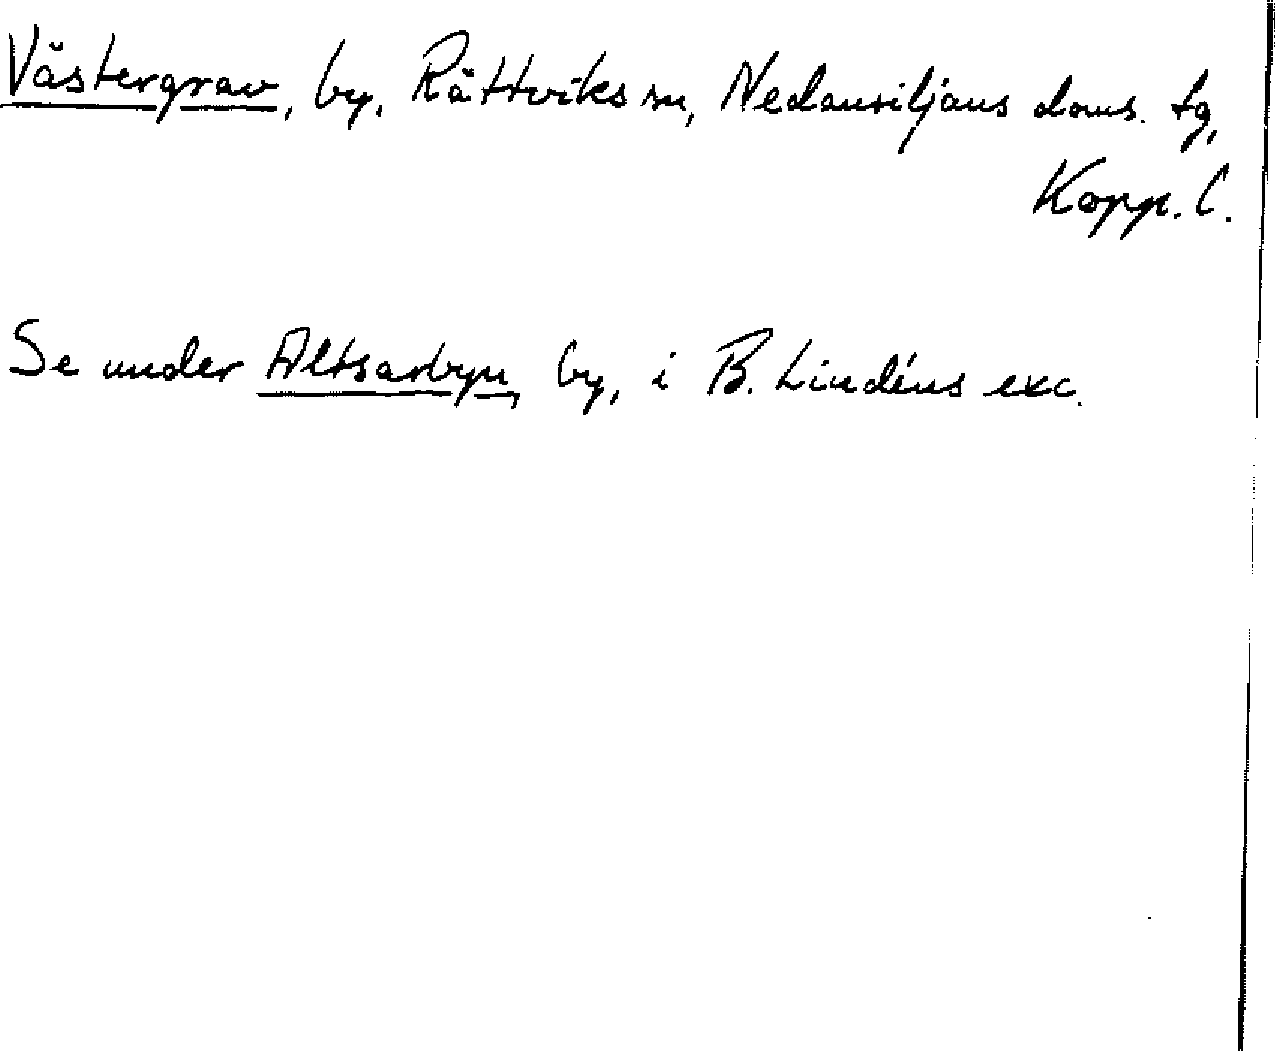 Västergrav, by, Rättviks sn, Nedansiljans doms. tg,
Kopp. l.
Se under Altsarbyn, by, i B. Lindéns exc.